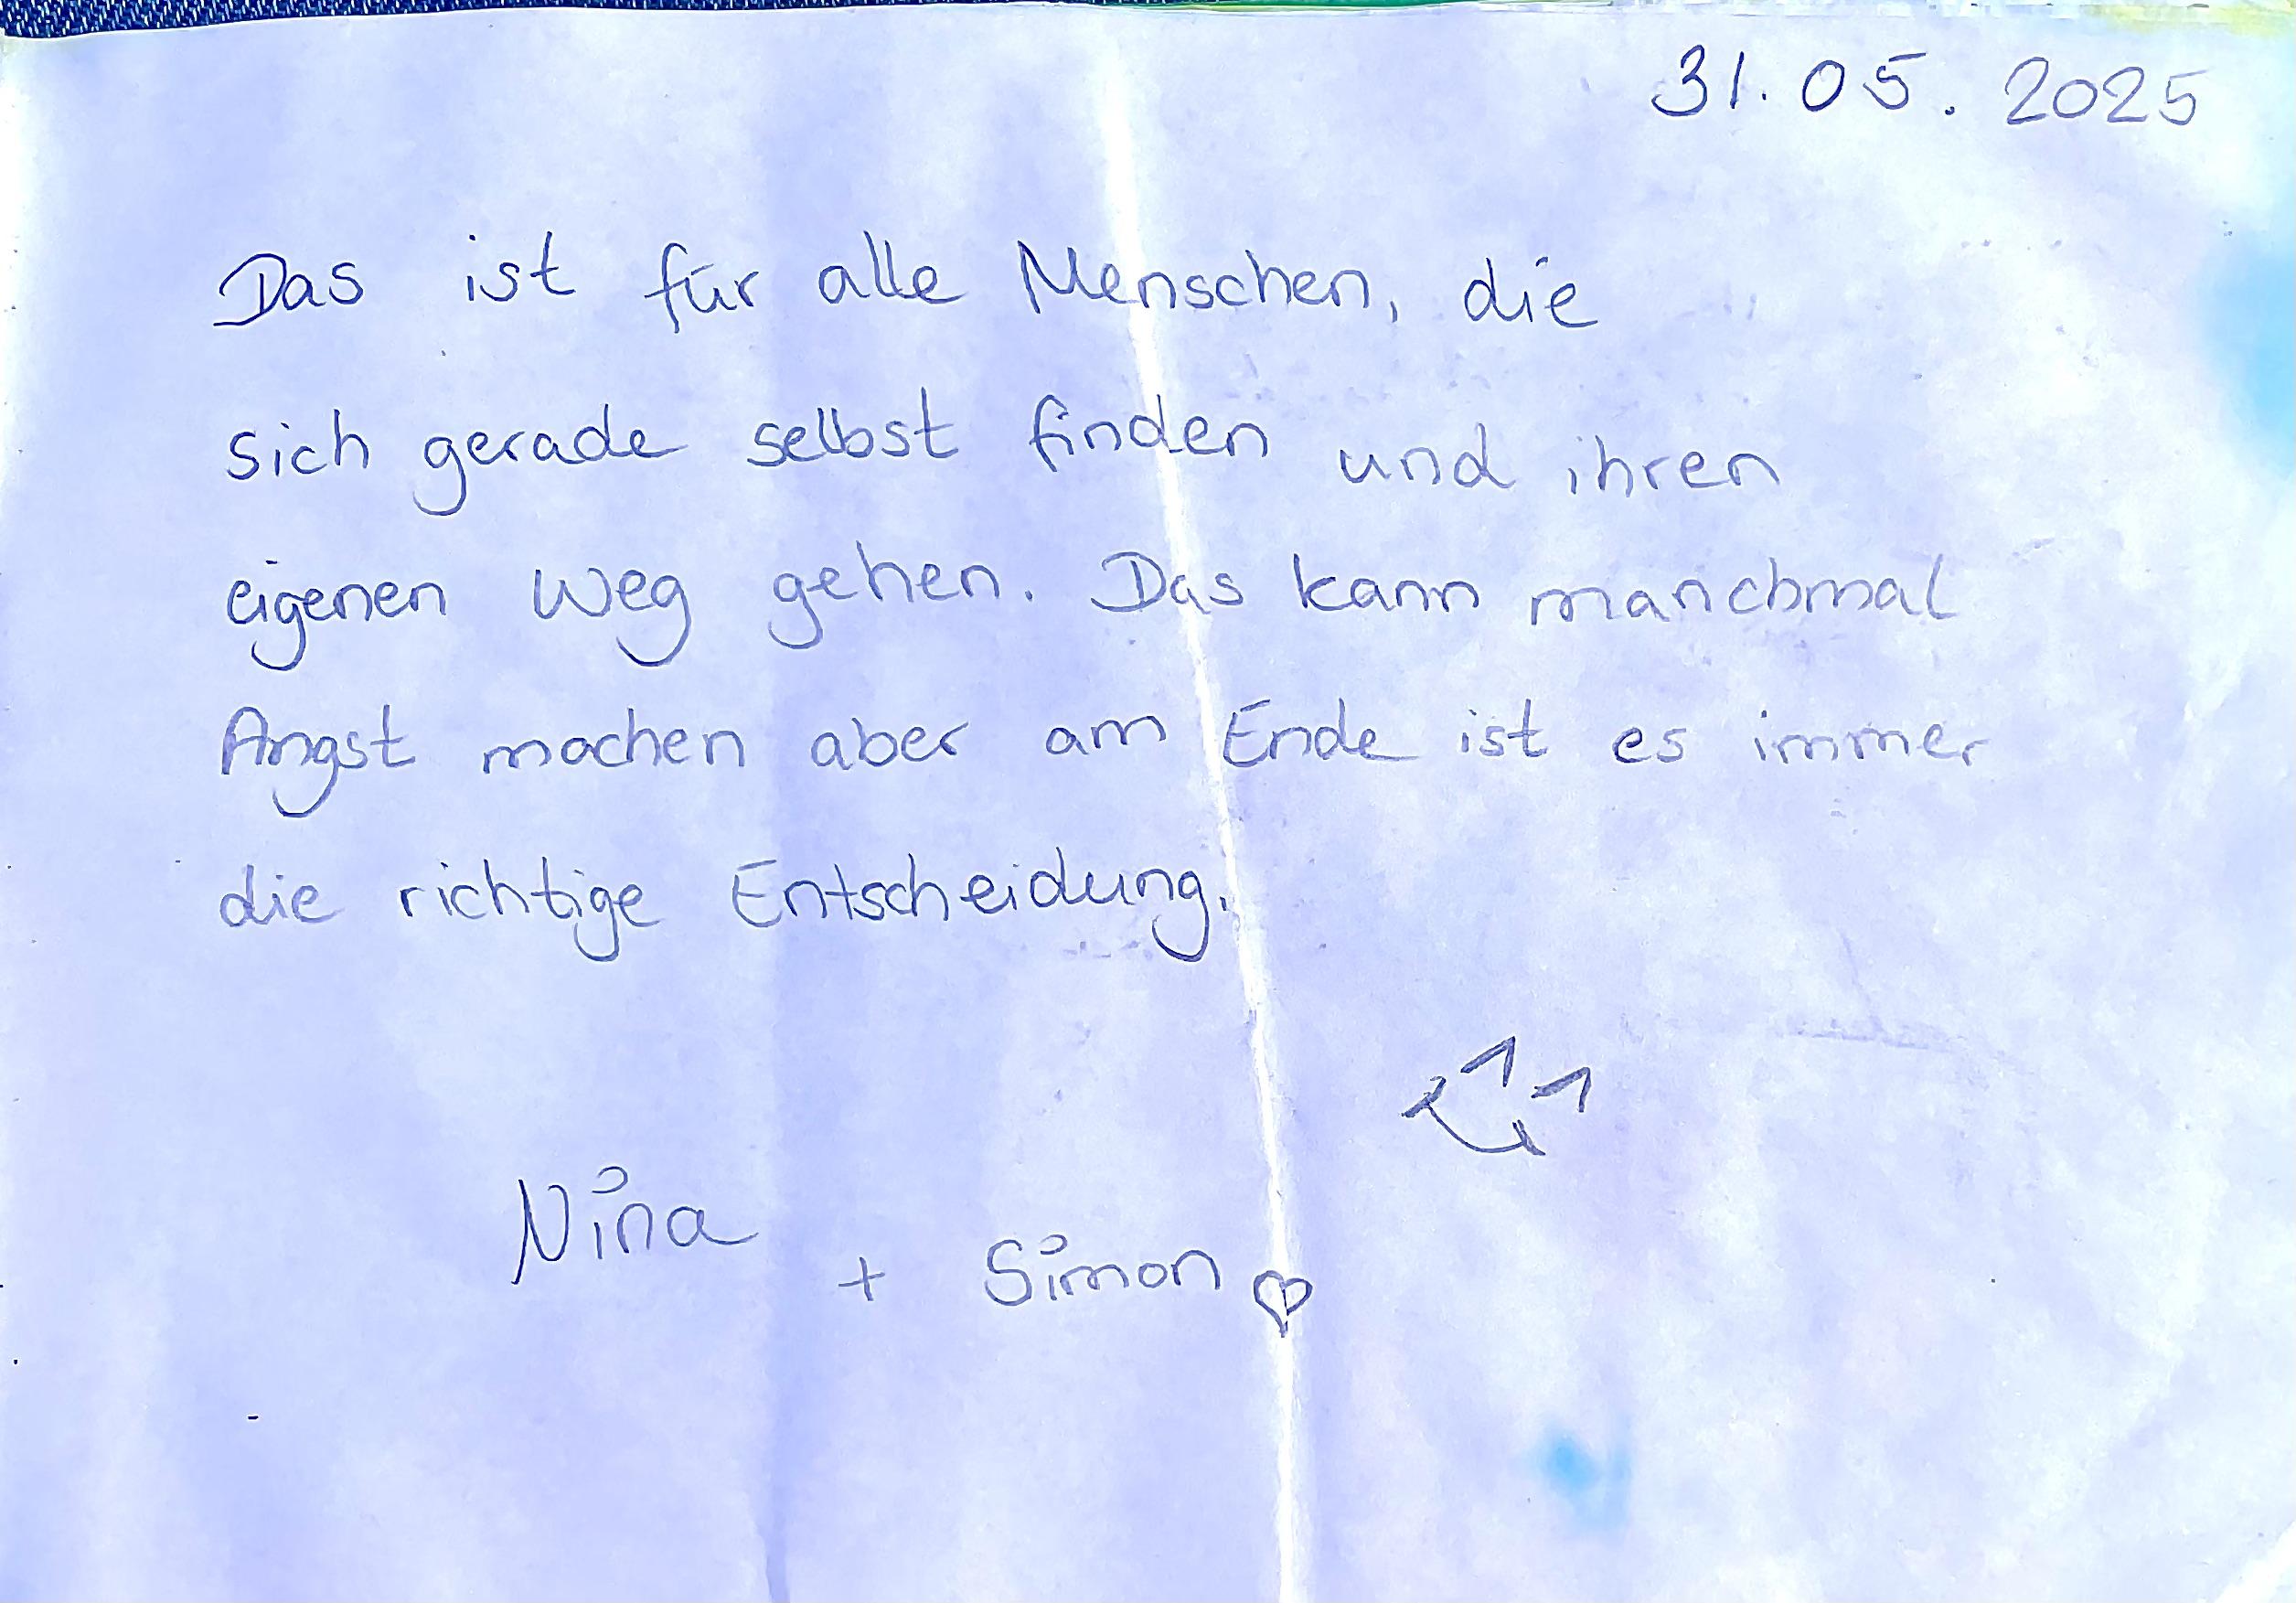 31.05.2025
Das ist für alle Menschen, die
sich gerade selbst finden und ihren
eigenen Weg gehen. Das kann manchmal
Angst machen aber am Ende ist es immer
die richtige Entscheidung.
Nina + Simon ♡